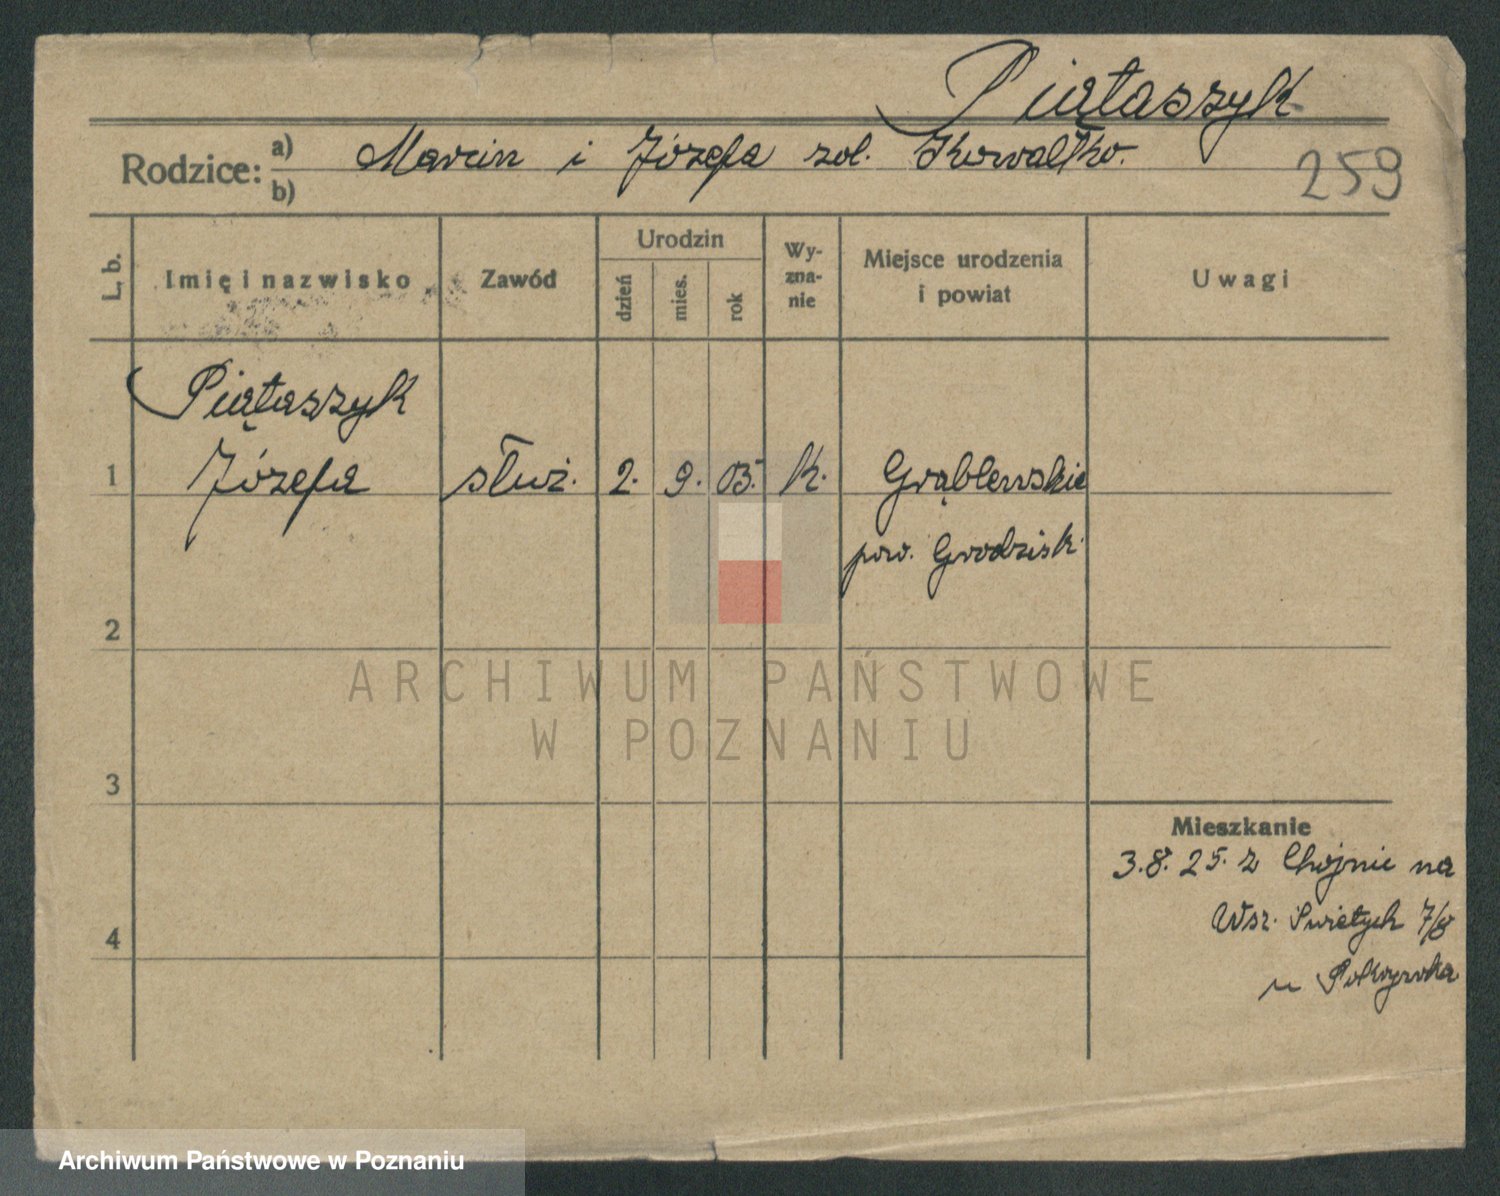 Piątaszyk
Rodzice: a) Marcin i Józefa zol. Kowalsko.
b)
259
L. b.
Imię i nazwisko
Zawód
Urodzin
dzień
mies.
rok
Wy-
zna-
nie
Miejsce urodzenia
i powiat
Uwagi
Piątaszyk
1 Józefa służ. 2. 9. 03. K. Grąblewskie
pow. Grodzisk
2
ARCHIWUM PAŃSTWOWE
W POZNANIU
3
Mieszkanie
3.8.25. z Chojnie na
Wsz. Świetych 7/8
4
u
Archiwum Państwowe w Poznaniu